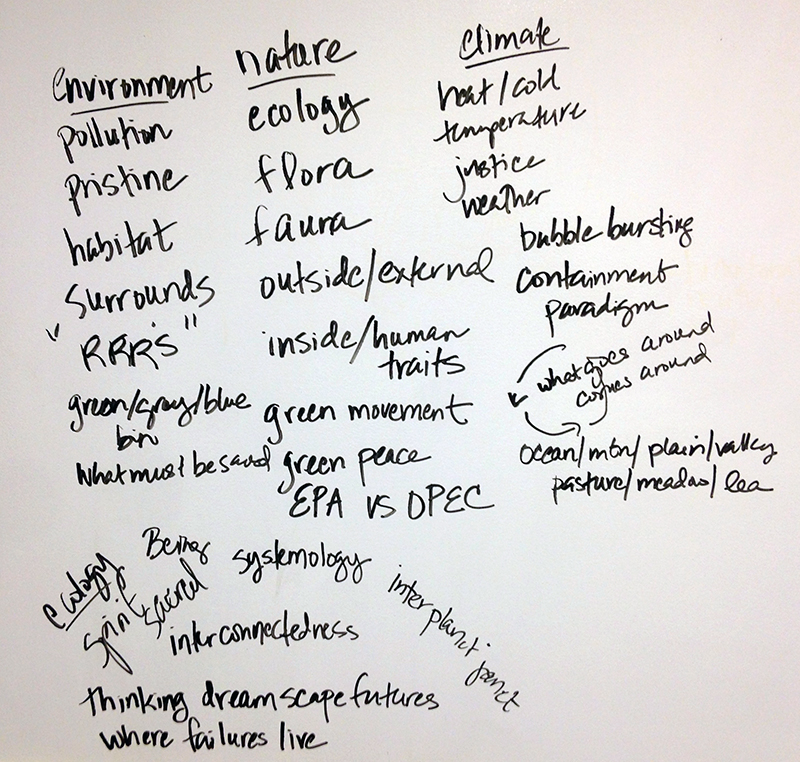 environment
pollution
pristine
habitat
surrounds
"RRR'S"
green/gray/blue
bin
what must be saved
nature
ecology
flora
faura
outside/external
inside/human
traits
green movement
green peace
EPA VS OPEC
climate
heat/cold
temperature
justice
weather
bubble bursting
containment
paradigm
what goes around
comes around
ocean/mtn/plain/valley
pasture/meadow/lea
ecology
Being
spirit
sacred
systemology
interconnectedness
interplanet
thinking dreamscape futures
where failures live